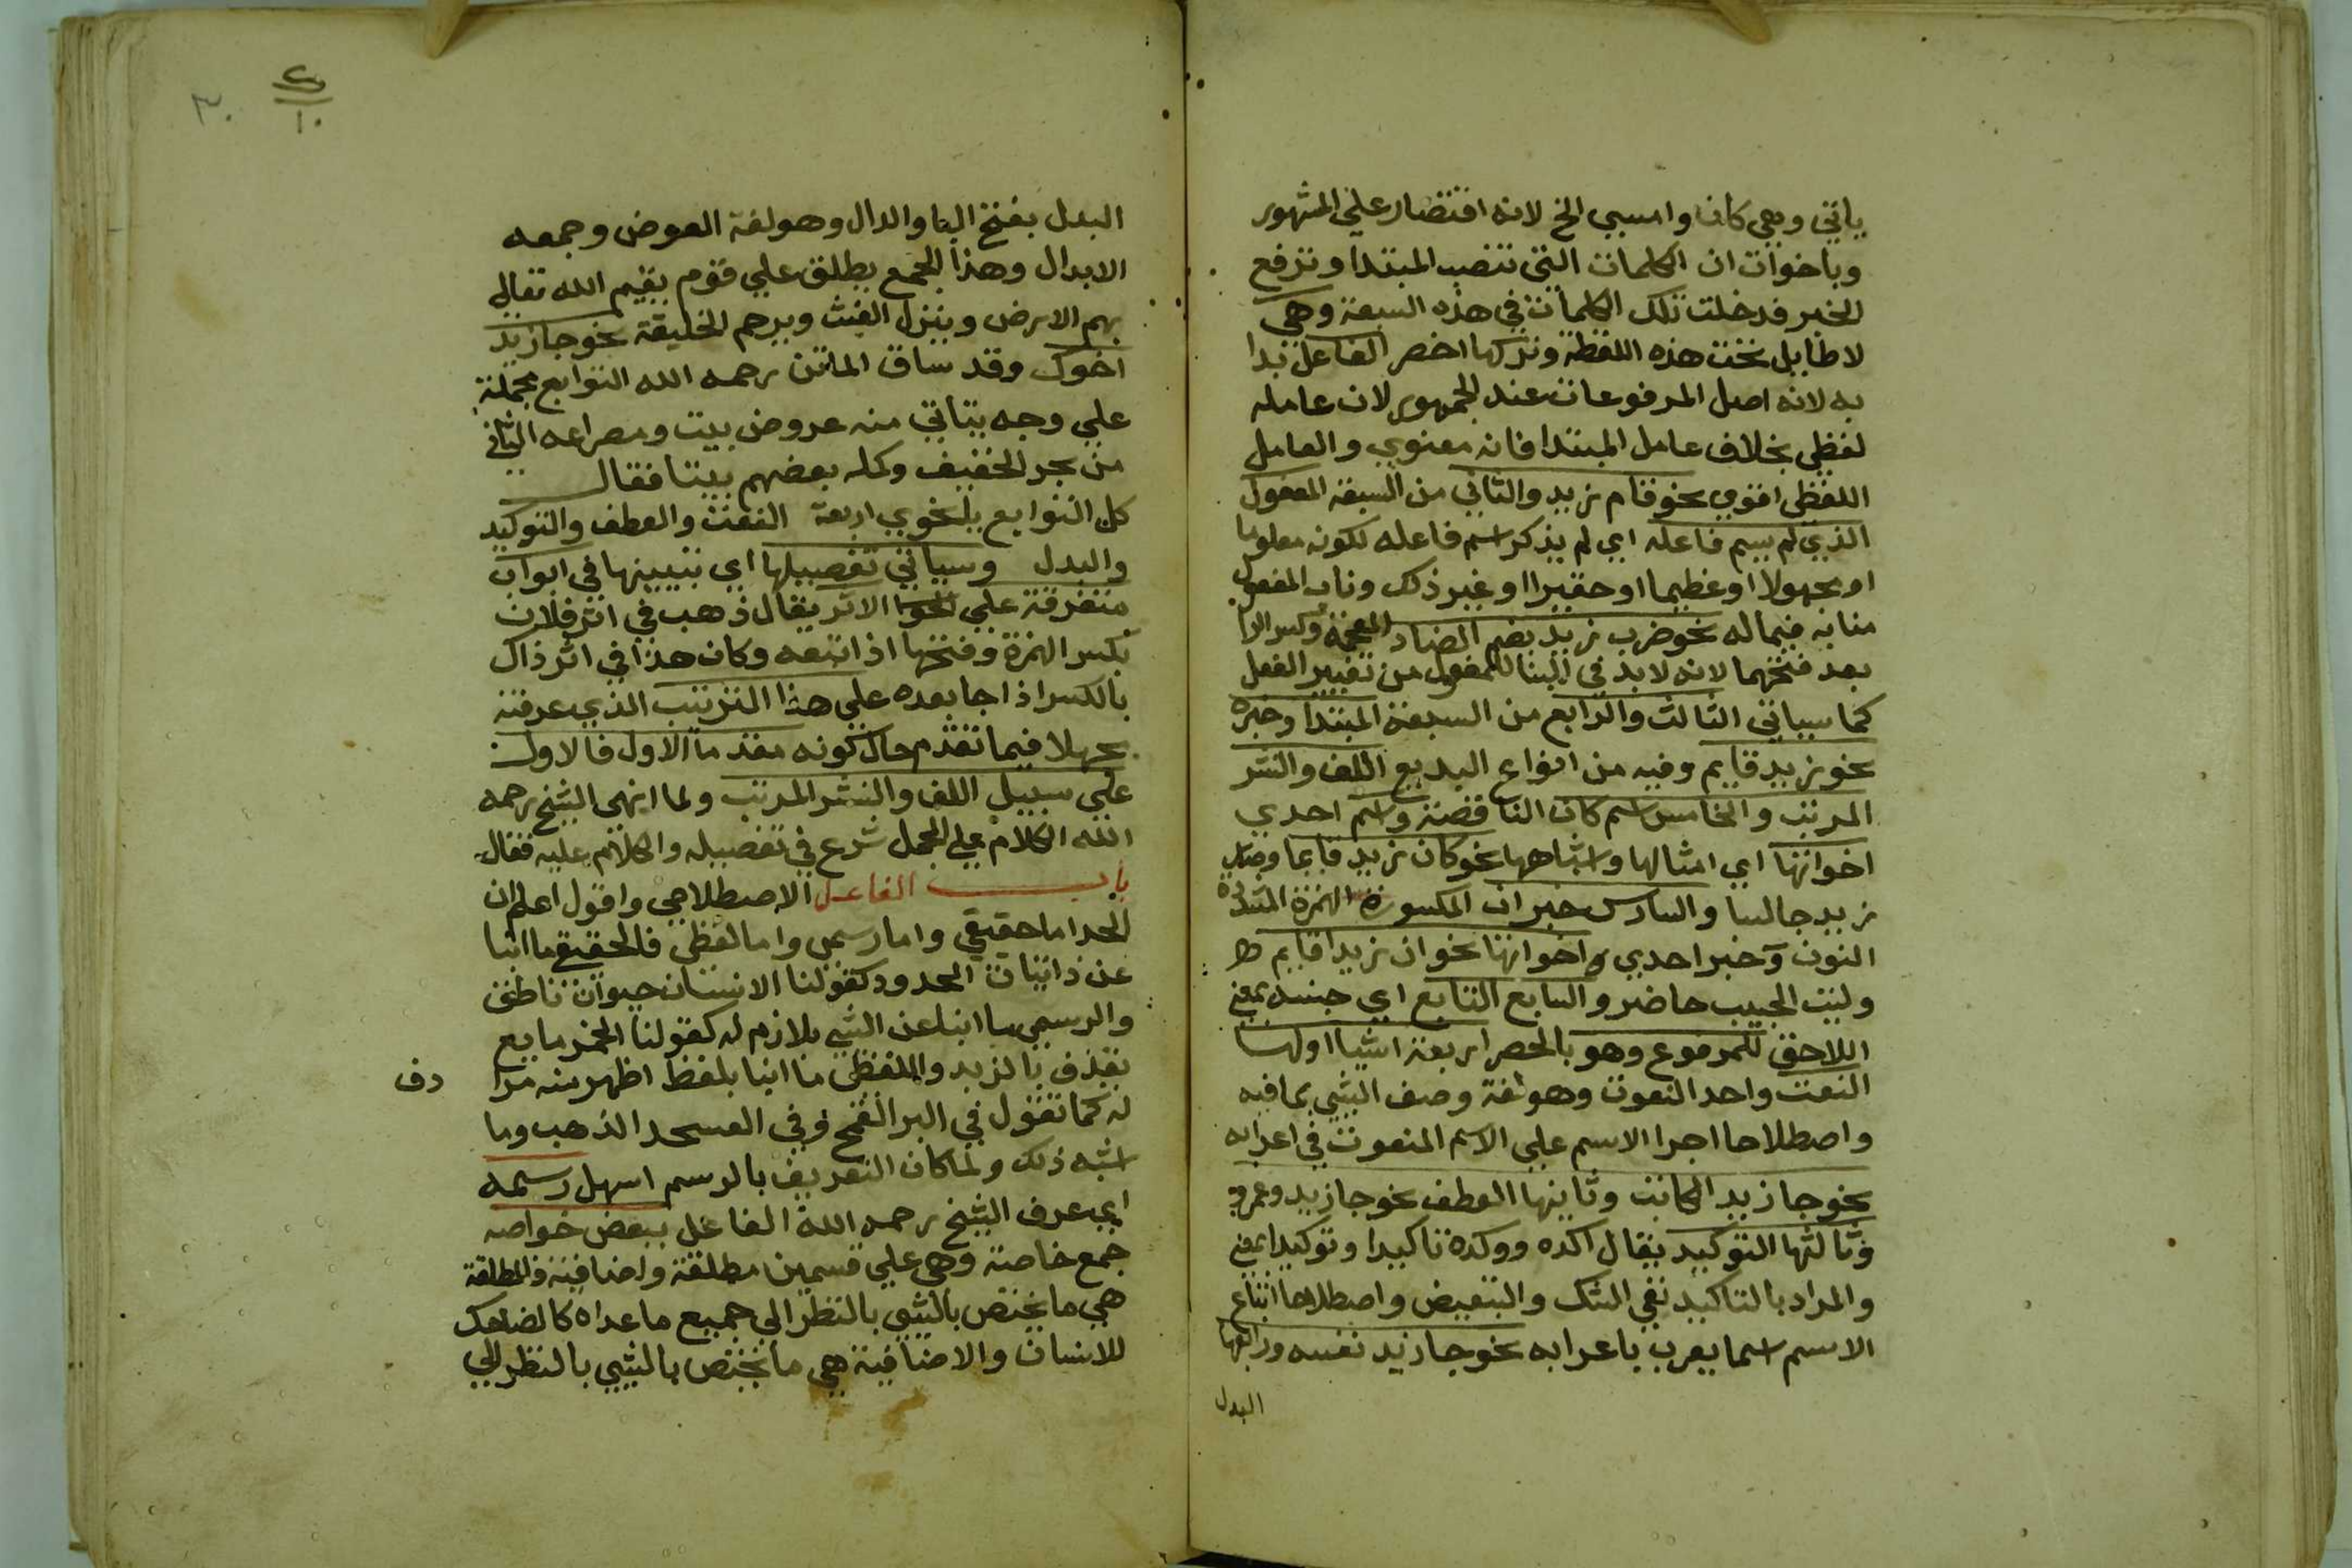 ياتي وهي كان وامسي الخ لانه اقتصار علي المشهور
وباخوات ان الكلمات التي تنصب المبتدا وترفع
الخبر فدخلت تلك الكلمات في هذه السبعة وهي
لا طايل تحت هذه اللفظة وتركها اخصر الفاعل بدا
به لانه اصل المرفوعات عند الجمهور لان عامله
لفظي بخلاف عامل المبتدا فانه معنوي والعامل
اللفظي اقوي نحو قام زيد والثاني من السبعة المفعول
الذي لم يسم فاعله اي لم يذكر اسم فاعله لكونه معلوما
او مجهولا او عظيما او حقيرا او غير ذلك وناب المفعول
منابه فيما له نحو ضرب زيد بضم الضاد المعجمة وكسر الرا
بعد فتحهما لانه لا بد في البنا للمفعول من تغيير الفعل
كما سياتي الثالث والرابع من السبعة المبتدا وخبره
نحو زيد قايم وفيه من انواع البديع اللف والنشر
المرتب والخامس اسم كان الناقصة واسم احدي
اخواتها اي امثالها واشباهها نحو كان زيد قايما وصار
زيد جالسا والسادس خبر ان المكسورة الهمزة المشددة
النون وخبر احدي اخواتها نحو ان زيدا قايم
وليت الحبيب حاضر والسابع التابع اي جنسه بمعني
اللاحق للمرفوع وهو بالحصر اربعة اشيا اولها
النعت واحد النعوت وهو لغة وصف الشي بما فيه
واصطلاحا اجرا الاسم علي الاسم المنعوت في اعرابه
نحو جا زيد الكاتب وثانيها العطف نحو جا زيد وعمرو
وثالثها التوكيد يقال اكده ووكده تاكيدا وتوكيدا بمعني
والمراد بالتاكيد نفي الشك والتبعيض واصطلاحا اتباع
الاسم اسما يعرب باعرابه نحو جا زيد نفسه ورابعها
البدل
٣٠
١٠
البدل بفتح البا والدال وهو لغة العوض وجمعه
الابدال وهذا الجمع يطلق علي قوم يقيم الله تعالي
بهم الارض وينزل الغيث ويرحم الخليقة نحو جا زيد
اخوك وقد ساق الماتن رحمه الله التوابع مجملة
علي وجه يتاتي منه عروض بيت ومصراعه الثاني
من بحر الخفيف وكمله بعضهم بيتا فقال
كل التوابع يا نحوي اربعة النعت والعطف والتوكيد
والبدل وسياتي تفصيلها اي تبيينها في ابواب
متفرقة علي الاثر يقال ذهب في اثر فلان
بكسر الهمزة وفتحها اذا تبعه وكان هذا في اثر ذاك
بالكسر اذا جا بعده علي هذا الترتيب الذي عرفته
مجملا فيما تقدم حال كونه مقدما الاول فالاول
علي سبيل اللف والنشر المرتب ولما انهي الشيخ رحمه
الله الكلام علي المجمل شرع في تفصيله والكلام عليه فقال
باب الفاعل الاصطلاحي واقول اعلم ان
الحد اما حقيقي واما رسمي واما لفظي فالحقيقي ما انبا
عن ذاتيات المحدود كقولنا الانسان حيوان ناطق
والرسمي ما انبا عن الشي بلازم له كقولنا الخمر مايع
يقذف بالزبد واللفظي ما انبا بلفظ اظهر منه مرا
دف
له كما تقول في البر القمح وفي العسجد الذهب وما
اشبه ذلك ولما كان التعريف بالرسم اسهل رسمه
اي عرف الشيخ رحمه الله الفاعل ببعض خواصه
جمع خاصة وهي علي قسمين مطلقة واضافية والمطلقة
هي ما يختص بالشي بالنظر الي جميع ما عداه كالضاحك
للانسان والاضافية هي ما يختص بالشي بالنظر الي